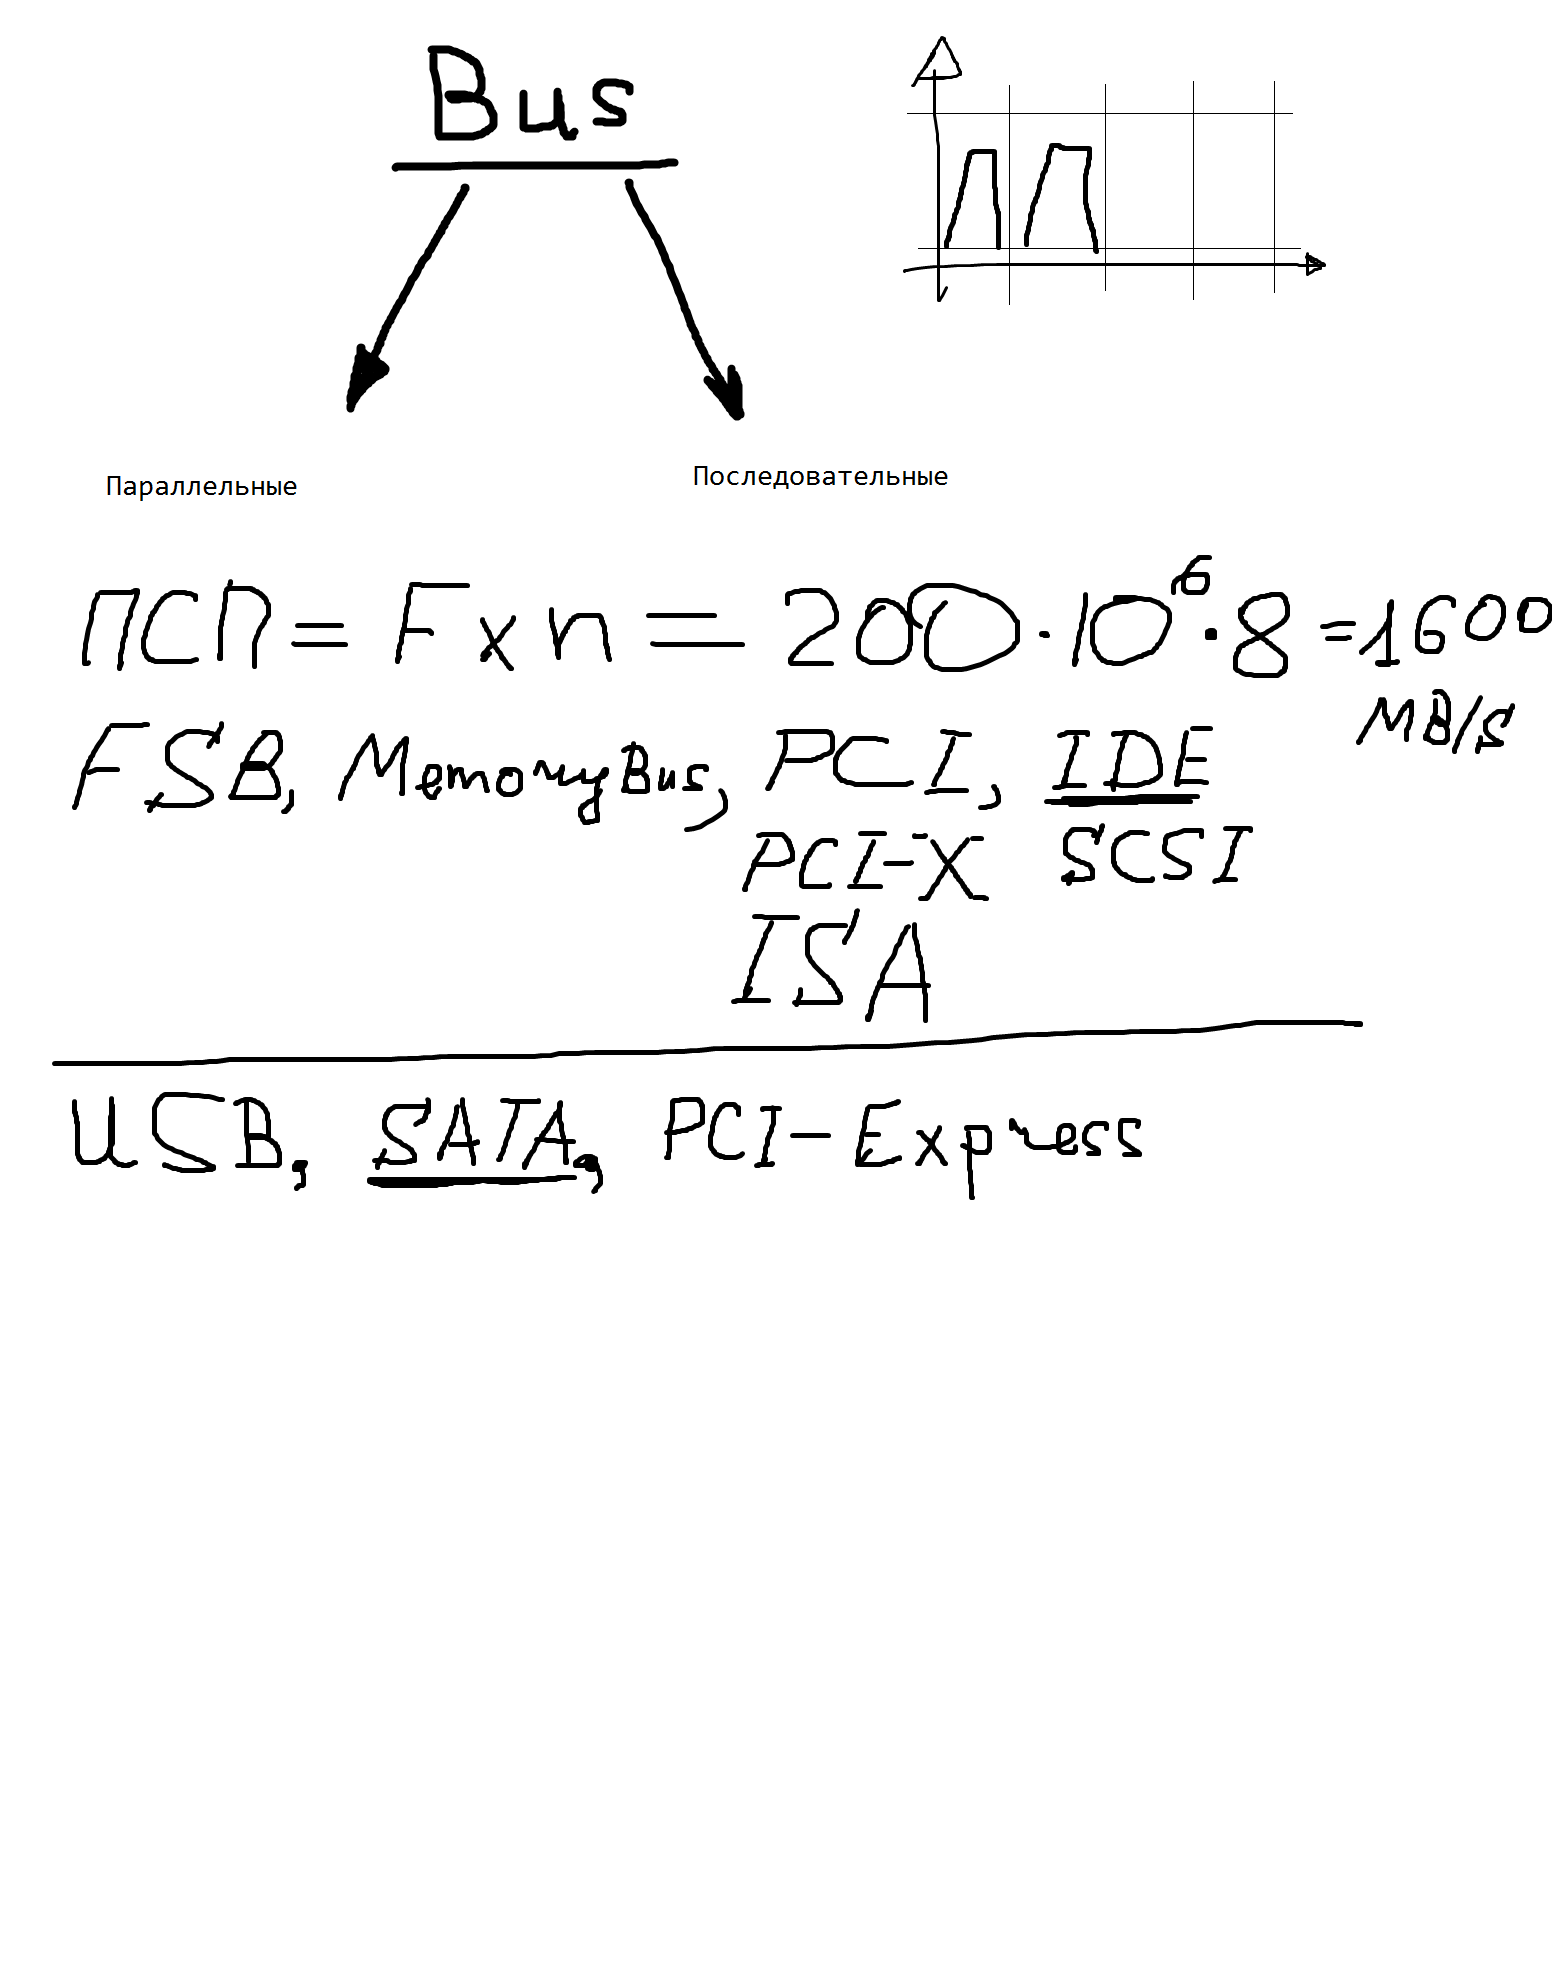 Bus
Параллельные
Последовательные
ПСП = F x n = 200 · 10⁶ · 8 = 1600
MB/s
FSB, MemoryBus, PCI, IDE
PCI-X SCSI
ISA
USB, SATA, PCI-Express